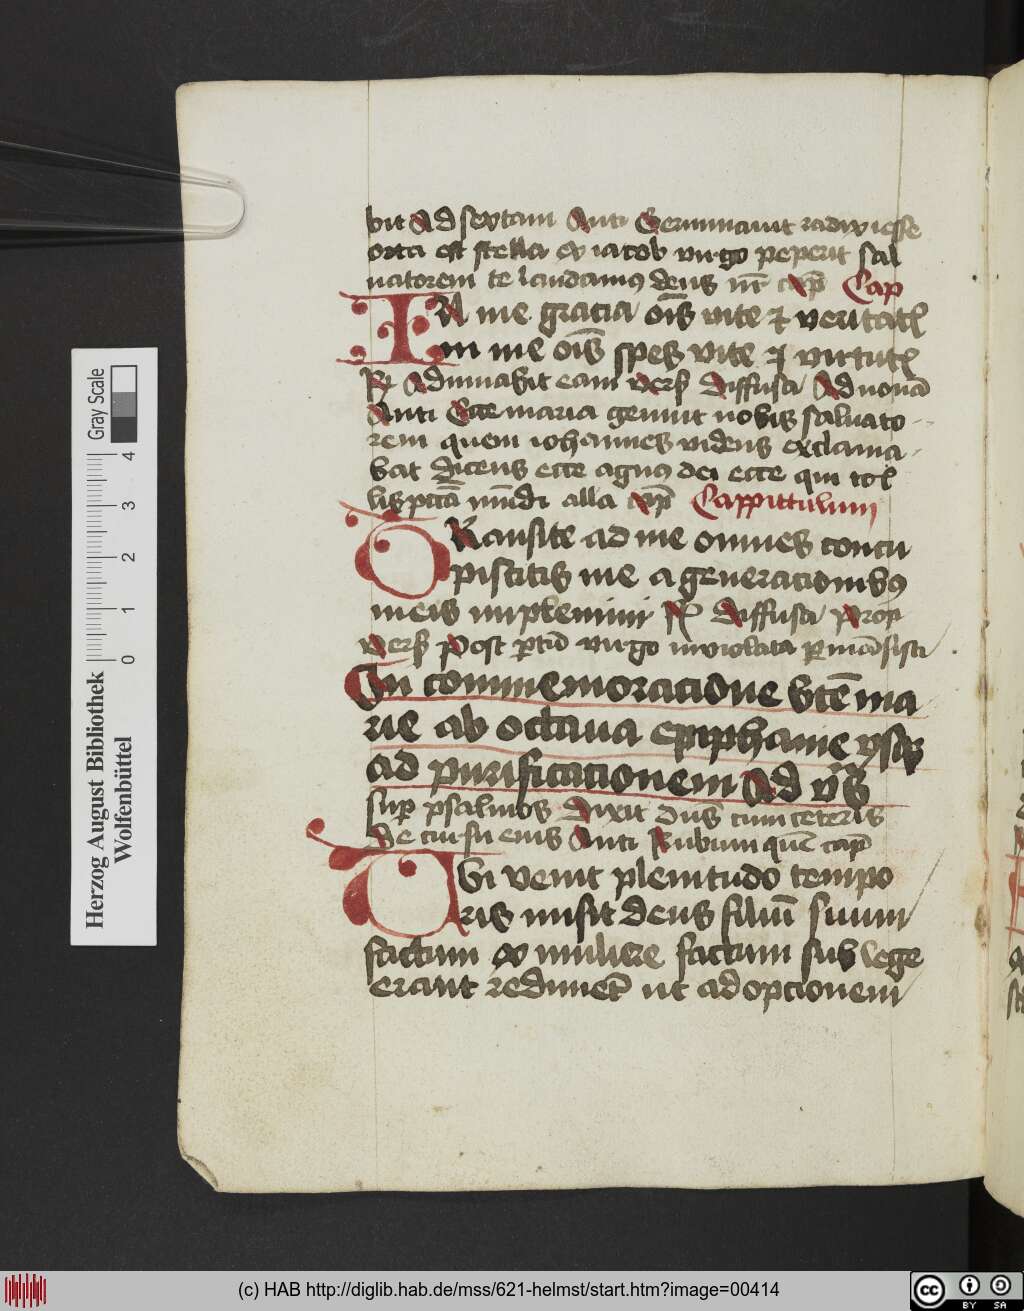 bit Ad sextam Anti Germinauit radix iesse
orta est stella ex iacob virgo peperit sal
uatorem te laudamus deus nr̄ cap̄ Cap
IN me gracia oīs vite et veritatꝭ
in me oīs spes vite et virtutꝭ
R Adiuuabit eam vers Diffusa Ad nonā
Anti Ecce maria genuit nobis saluato
rem quem iohannes videns exclama
bat dicens ecce agnus dei ecce qui tol
lis pccā mūdi alla cap̄ Cappittulum
TRansite ad me omnes concu
piscitis me a generacionibꝰ
meis implemini R Diffusa
vers Post ptū virgo inuiolata pmāsisti
In commemoracione bte͞ ma
rie ab octaua epiphanie vsqꝫ
ad purificacionem Ad vs̄
sup psalmos Dixit dn̄s cum ceteris
de cursu eius Anti Rubum quē cap̄
VBi venit plenitudo tempo
ris misit deus filiū suum
factum ex muliere factum sub lege
erant redimet ut adopcionem
Herzog August Bibliothek
Wolfenbüttel
Gray Scale
0 1 2 3 4
(c) HAB http://diglib.hab.de/mss/621-helmst/start.htm?image=00414
cc BY SA